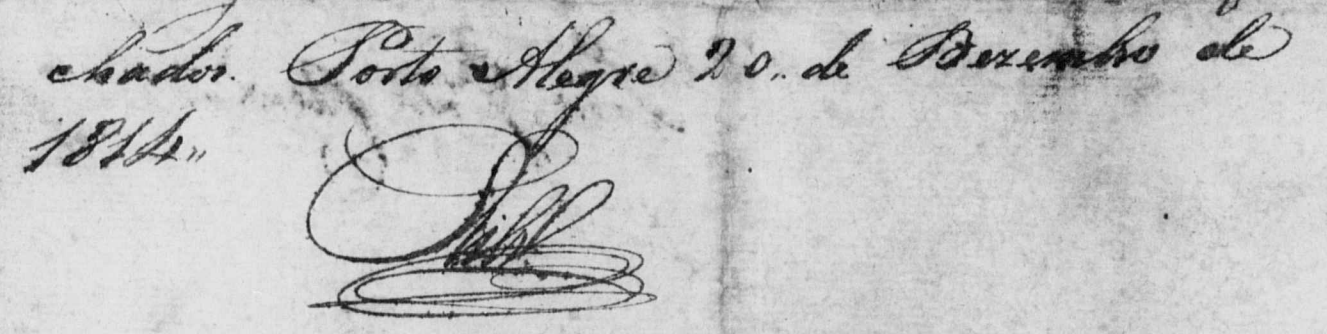 chador. Porto Alegre 20,, de Dezembro de
1814,,